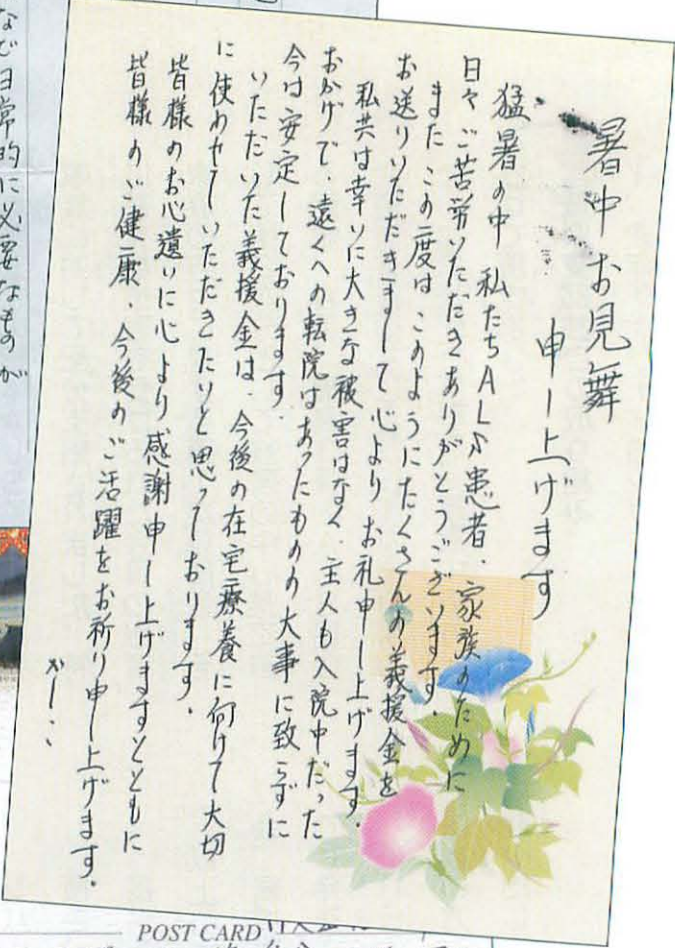 暑中お見舞
申し上げます
猛暑の中 私たちALS患者、家族のために
日々ご苦労いただきありがとうございます。
また この度は このようにたくさんの義援金を
お送りいただきまして 心より お礼申し上げます。
私共は幸いに大きな被害はなく、主人も入院中だった
おかげで、遠くへの転院はあったものの大事に致らずに
今は安定しております。
いただいた義援金は、今後の在宅療養に向けて大切
に使わせていただきたいと思っております。
皆様のお心遣いに心より感謝申し上げますとともに
皆様のご健康、今後のご活躍をお祈り申し上げます。
かしこ
など日常的に必要なものが
POST CARD